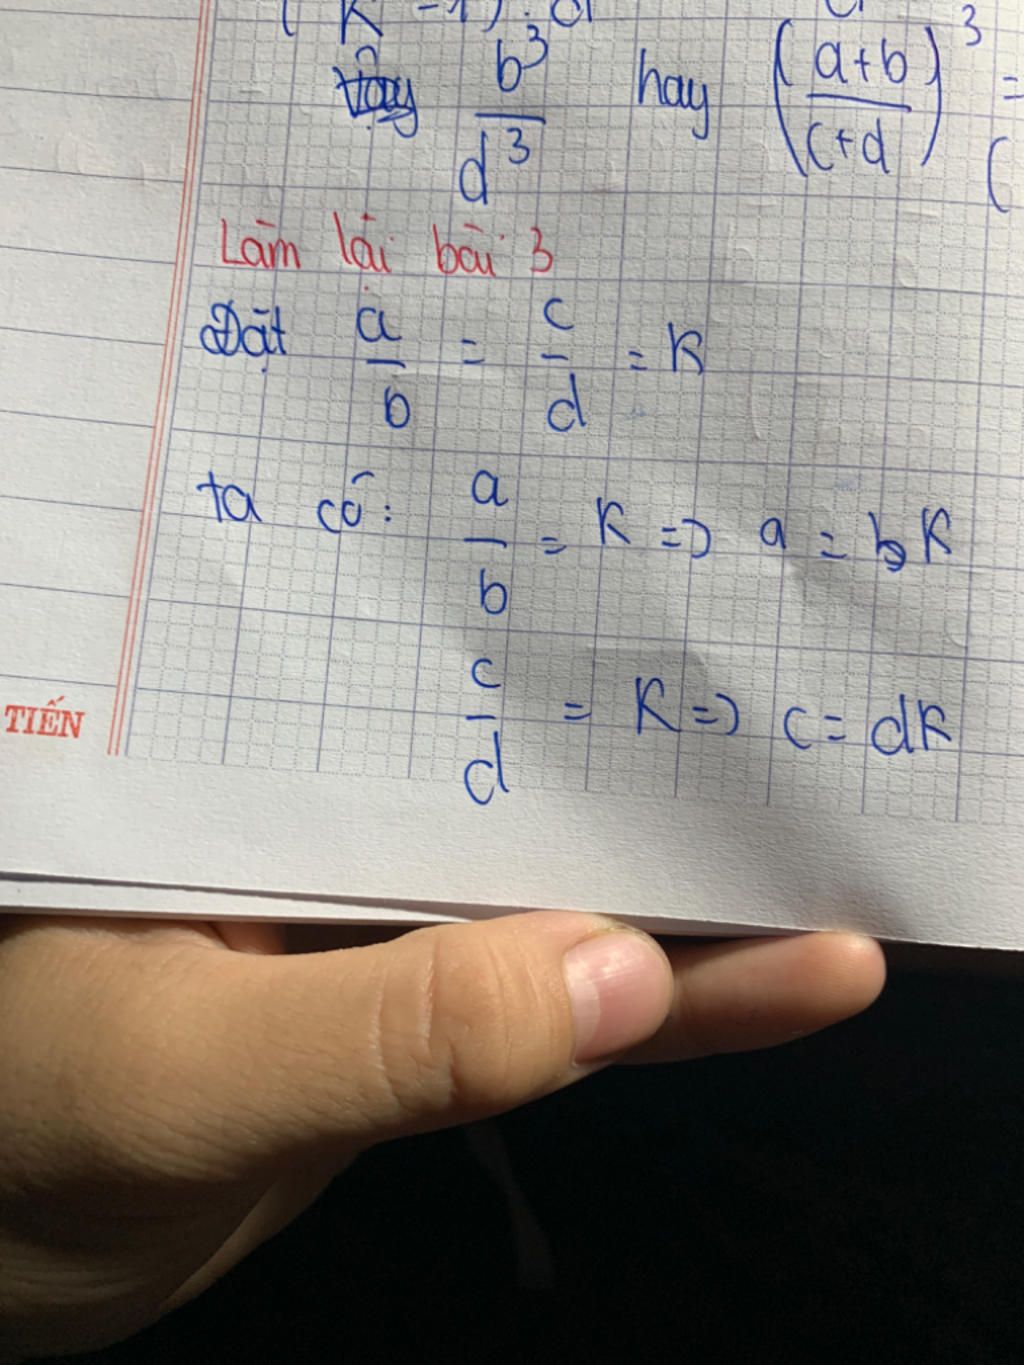 (K - 1)³. d
b³/d³ hay ((a+b)/(c+d))³ = (
Làm lại bài 3
Đặt a/b = c/d = K
ta có: a/b = K => a = bK
c/d = K => c = dK
TIẾN